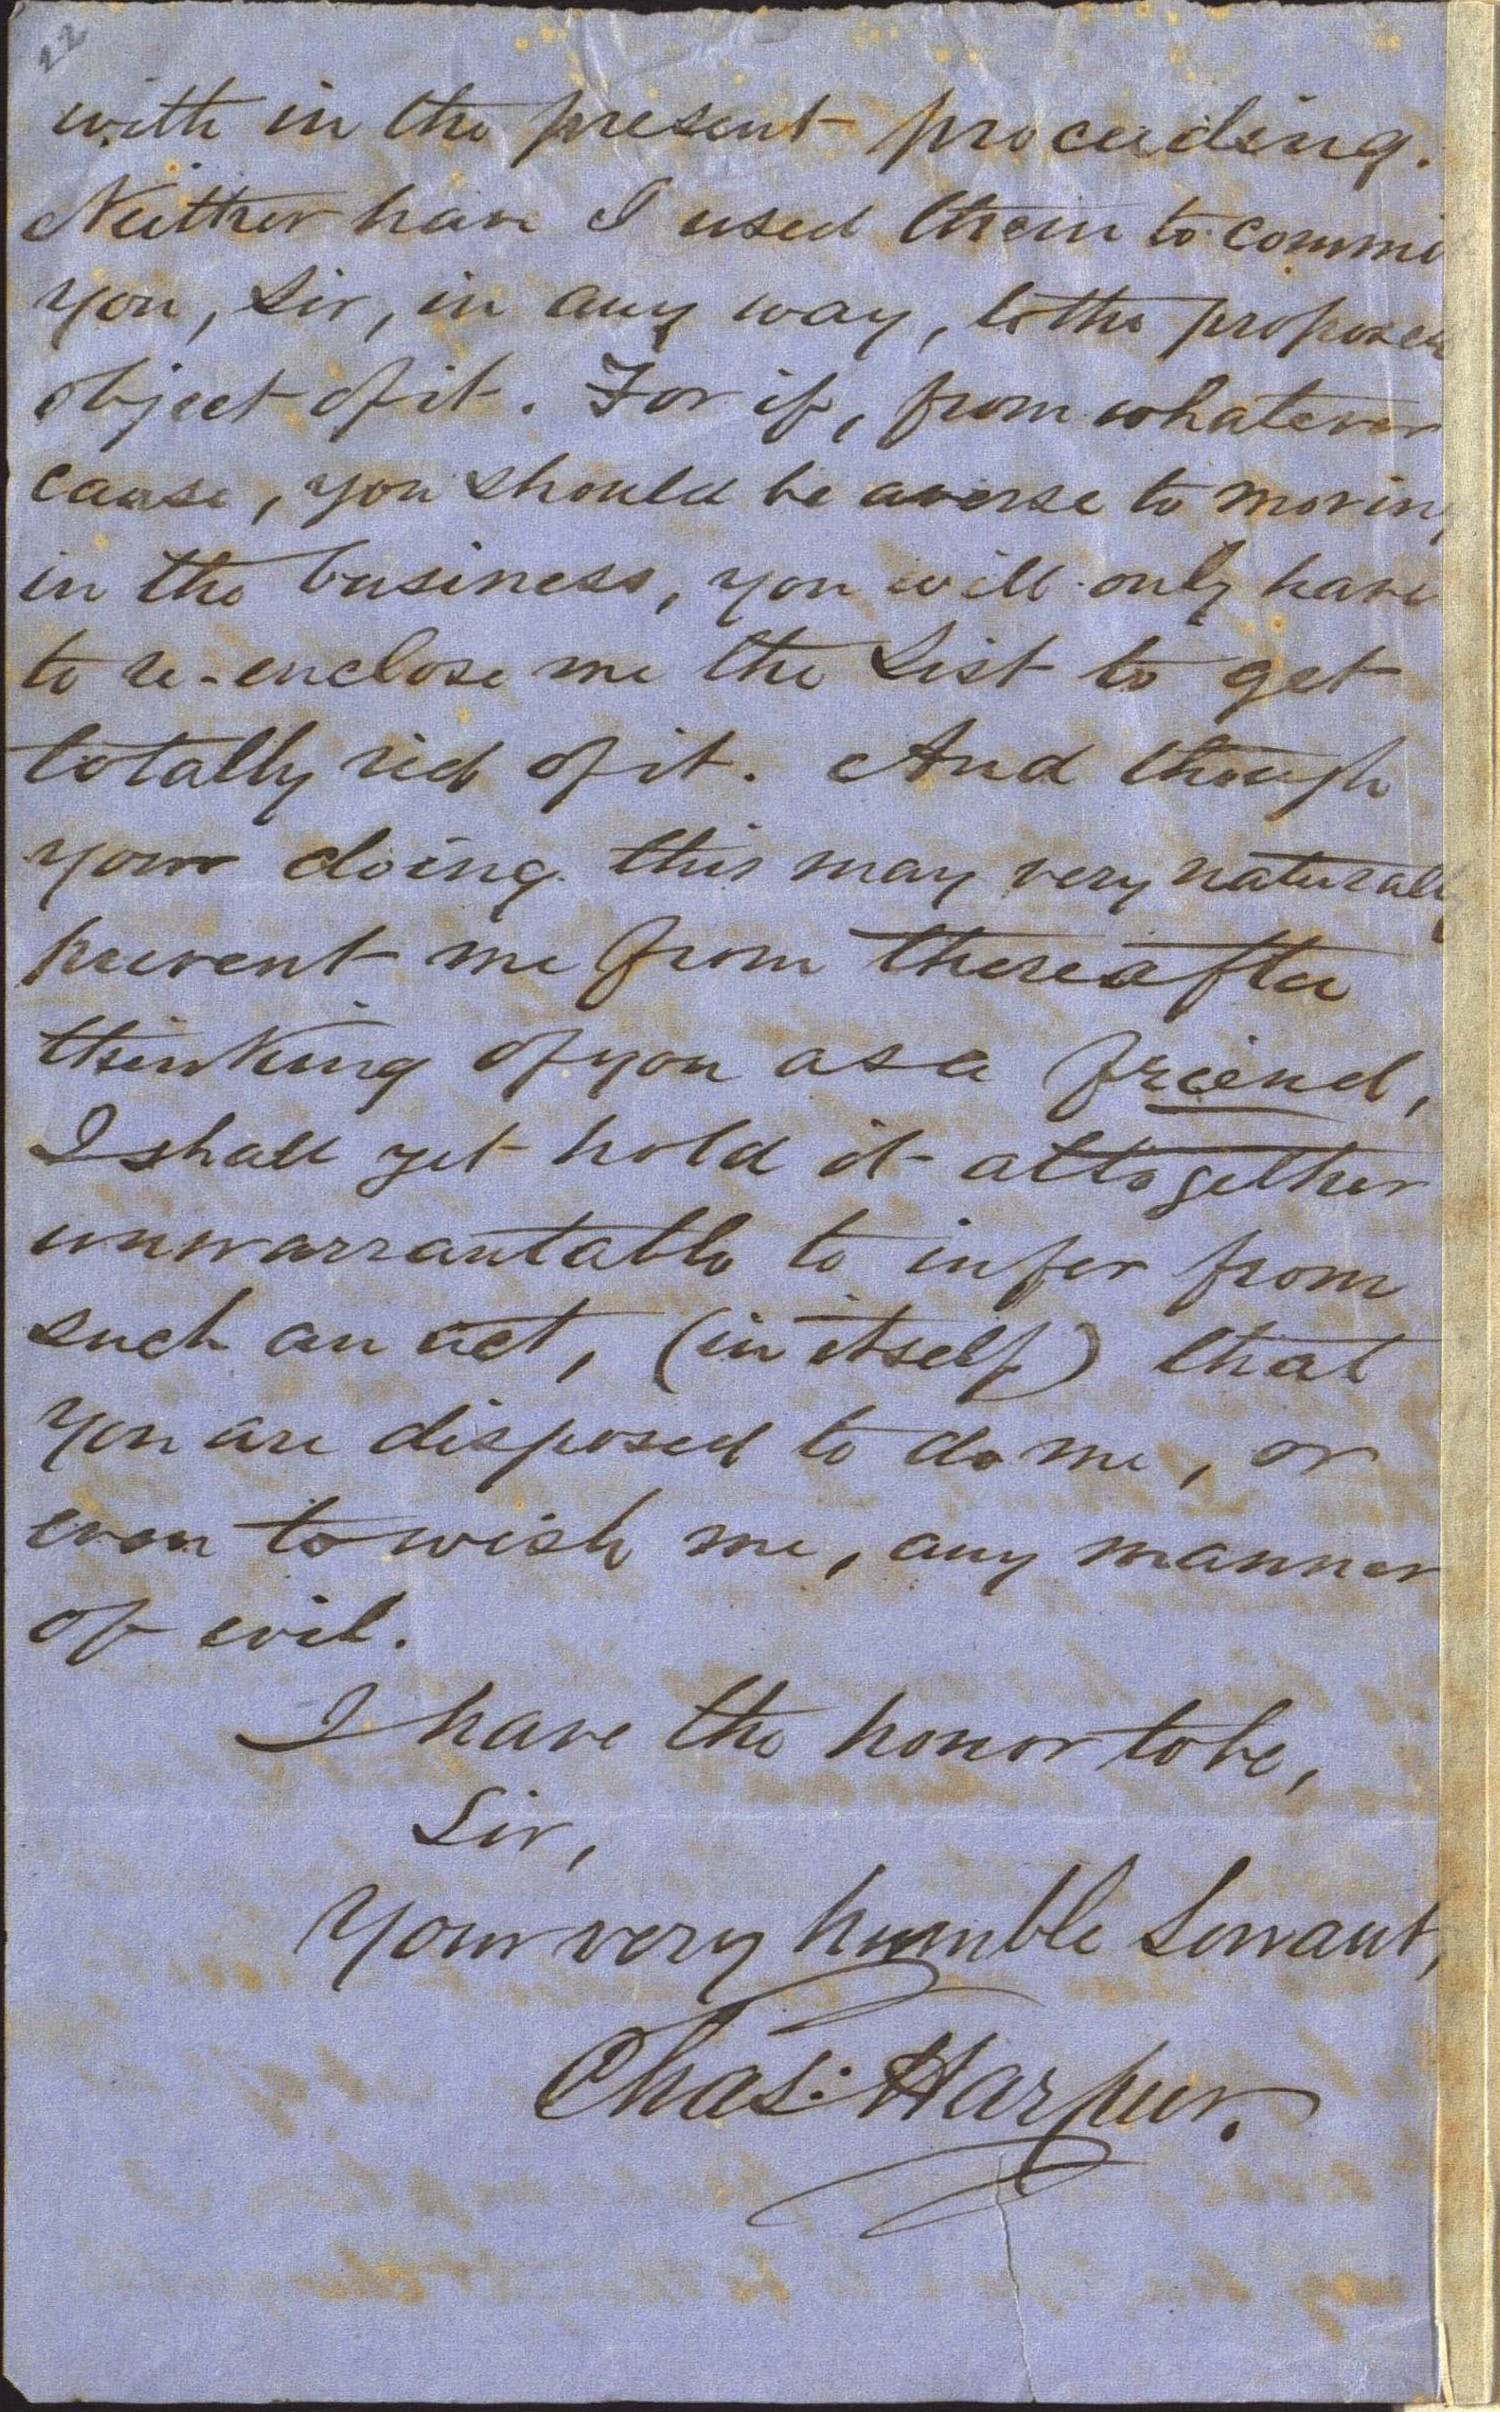 22
with in the present proceeding.
Neither have I used them to commi
you, Sir, in any way, to the propose
object of it. For if, from whatever
cause, you should be averse to moving
in the business, you will only have
to re-enclose me the List to get
totally rid of it. And though
your doing this may very naturally
prevent me from thereafter
thinking of you as a friend,
I shall yet hold it altogether
unwarrantable to infer from
such an act, (in itself) that
you are disposed to do me, or
even to wish me, any manner
of evil.
I have the honor to be,
Sir,
Your very humble Servant,
Chas: Harpur.